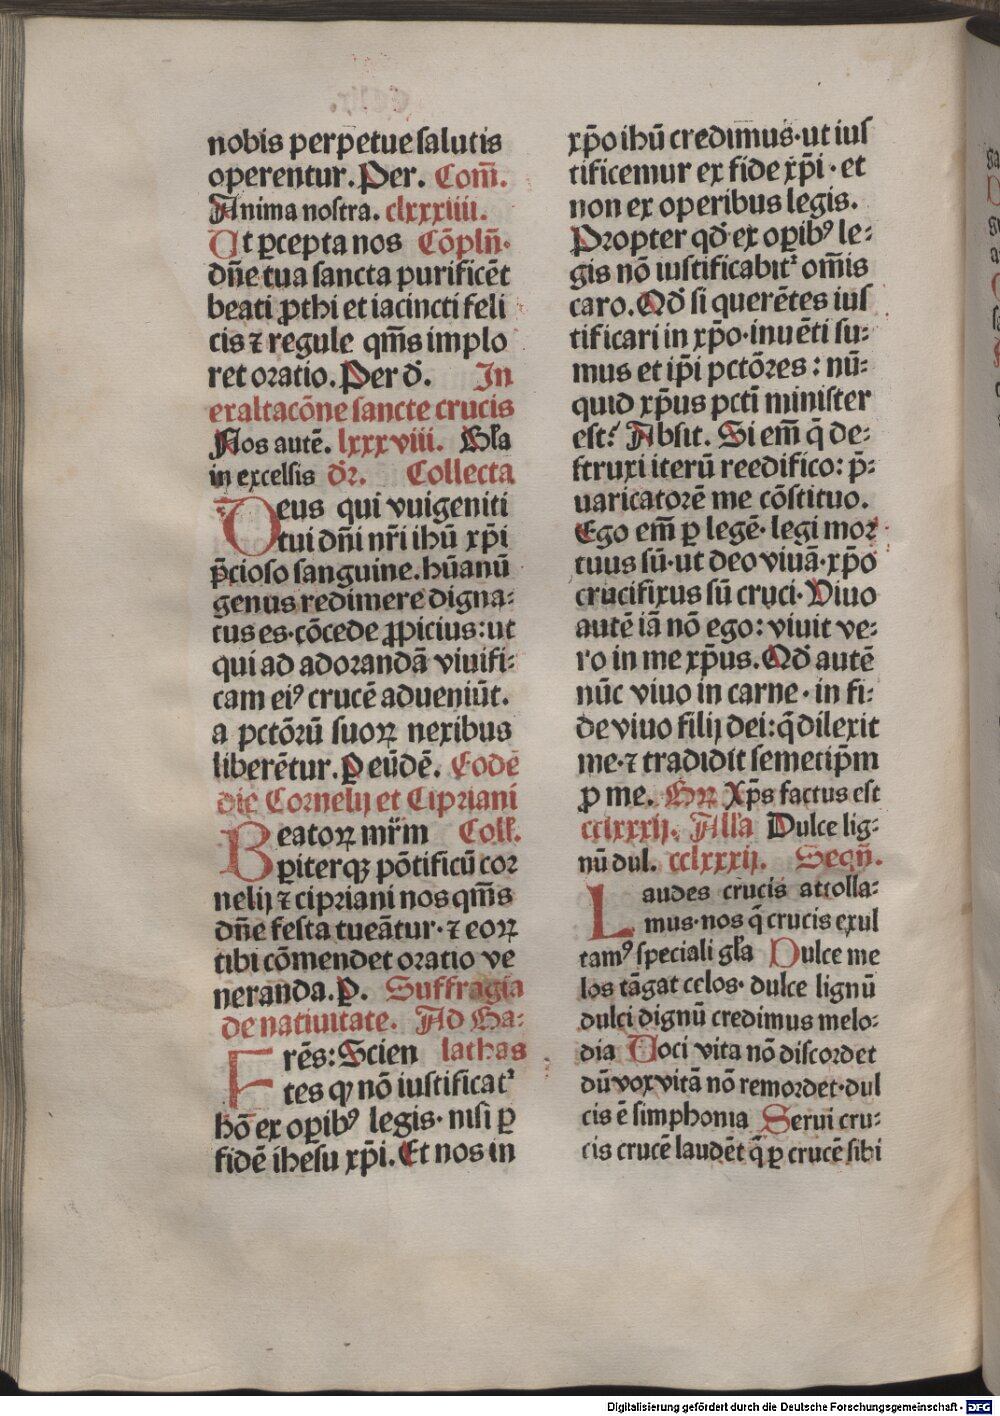 nobis perpetue salutis
operentur. Per. Com̄.
Anima nostra. clxxxiiii.
Ut ꝑcepta nos Cōpln̄.
dn̄e tua sancta purificēt
beati ꝓthi et iacincti feli
cis ⁊ regule qm̄s implo
ret oratio. Per d̄. In
exaltacōne sancte crucis
Nos autē. lxxxviii. Gl̄a
in excelsis dr̄. Collecta
Deus qui vnigeniti
tui dn̄i nr̄i ihū xp̄i
p̄cioso sanguine. hūanū
genus redimere digna⸗
tus es. cōcede ꝓpicius: ut
qui ad adorandā viuifi⸗
cam eiꝰ crucē adueniūt.
a pctōrū suoꝝ nexibus
liberētur. ꝑ eūdē. Eodē
die Cornelij et Cipriani
Beatoꝝ mr̄m Coll̄.
ꝑiterqꝫ pōtificū cor
nelij ⁊ cipriani nos qm̄s
dn̄e festa tueātur. ⁊ eoꝝ
tibi cōmendet oratio ve
neranda. ꝑ. Suffragia
de natiuitate. Ad Ga⸗
Frēs: Scien lathas
tes qꝫ nō iustificat᷑
hō ex oꝑibꝰ legis. nisi ꝑ
fidē ihesu xp̄i. Et nos in
xp̄o ihū credimus. ut ius
tificemur ex fide xp̄i. et
non ex operibus legis.
Propter qd̄ ex oꝑibꝰ le⸗
gis nō iustificabit᷑ om̄is
caro. Qd̄ si querētes ius
tificari in xp̄o. inuēti su⸗
mus et ip̄i pctōres: nū⸗
quid xp̄us pcti̅ minister
est? Absit. Si em̄ q̄ de⸗
struxi iterū reedifico: p̄⸗
uaricatorē me cōstituo.
Ego em̄ ꝑ legē. legi mor
tuus sū. ut deo viuā. xp̄o
crucifixus sū cruci. Viuo
autē iā nō ego: viuit ve⸗
ro in me xp̄us. Qd̄ autē
nūc viuo in carne. in fi⸗
de viuo filij dei: q̄ dilexit
me. ⁊ tradidit semetip̄m
ꝓ me. Gꝝ Xp̄s factus est
cclxxxij. All̄a Dulce lig⸗
nū dul. cclxxxij. Seqn̄.
Laudes crucis attolla⸗
mus. nos q̄ crucis exul
tamꝰ speciali gl̄a Dulce me
los tāgat celos. dulce lignū
dulci dignū credimus melo⸗
dia Voci vita nō discordet
dū vox vitā nō remordet. dul
cis ē simphonia Serui cru⸗
cis crucē laudēt q̄ ꝑ crucē sibi
Digitalisierung gefördert durch die Deutsche Forschungsgemeinschaft - DFG